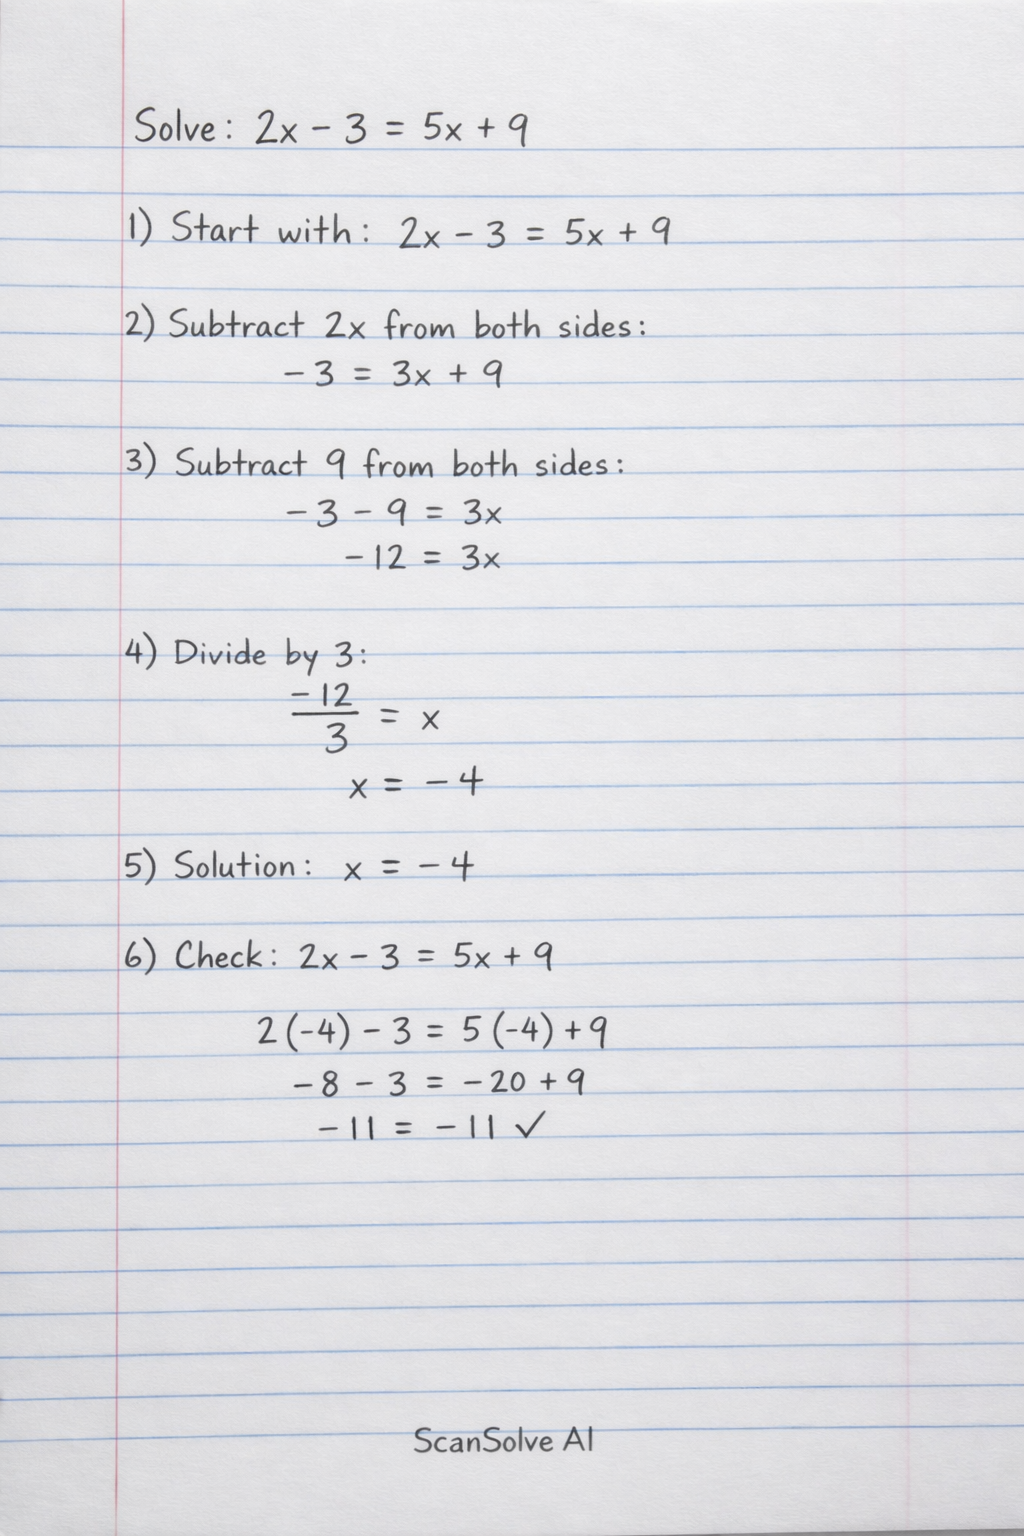 Solve: 2x - 3 = 5x + 9
1) Start with: 2x - 3 = 5x + 9
2) Subtract 2x from both sides:
-3 = 3x + 9
3) Subtract 9 from both sides:
-3 - 9 = 3x
-12 = 3x
4) Divide by 3:
-12
3
= x
x = -4
5) Solution: x = -4
6) Check: 2x - 3 = 5x + 9
2(-4) - 3 = 5(-4) + 9
-8 - 3 = -20 + 9
-11 = -11 ✓
ScanSolve AI